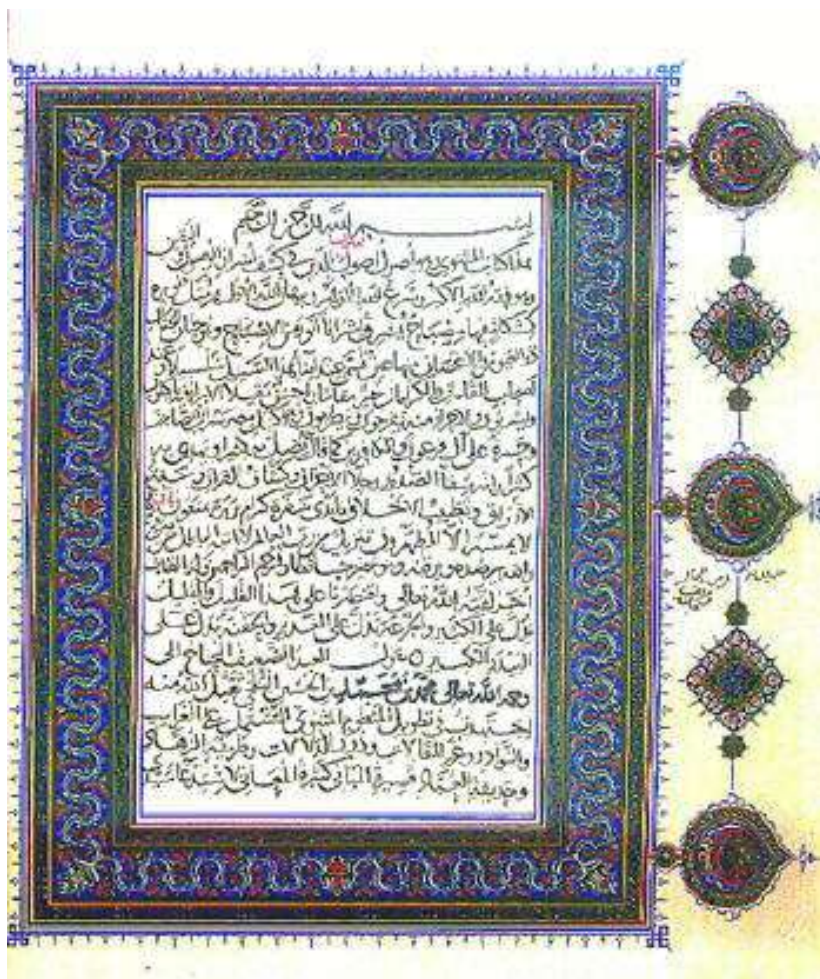 بسم الله الرحمن الرحيم
هذا كتاب المثنوي وهو أصول أصول الدين في كشف أسرار الوصول واليقين
وهو فقه الله الاكبر وشرع الله الازهر وبرهان الله الاظهر مثل نوره
كمشكاة فيها مصباح يشرق اشراقا انور من الاصباح وهو جنان الجنان
ذو العيون والاغصان منها عين تسمى عند ابناء هذا السبيل سلسبيلا وعند
اصحاب المقامات والكرامات خير مقاما واحسن مقيلا الابرار فيه ياكلون
ويشربون والاحرار منه يفرحون ويطربون وهو كنيل مصر شراب للصابرين
وحسرة على آل فرعون والكافرين كما قال يضل به كثيرا ويهدي به
كثيرا انه شفاء الصدور وجلاء الاحزان وكشاف القرآن وسعة
الارزاق وتطييب الاخلاق بايدي سفرة كرام بررة يمنعون
لا يمسه الا المطهرون تنزيل من رب العالمين لا ياتيه الباطل من
والله يرصده ويرقبه وهو خير حافظا وهو ارحم الراحمين وله القاب
اخر لقبه الله تعالى واقتصرنا على هذا القليل والقليل
يدل على الكثير والجرعة تدل على الغدير والحفنة تدل على
البيدر الكبير يقول العبد الضعيف المحتاج الى
رحمة الله تعالى محمد بن محمد بن الحسين البلخي تقبل الله منه
اجتهدت في تطويل المنظوم المثنوي المشتمل على الغرايب
والنوادر وغرر المقالات ودرر الدلالات وطريقة الزهاد
وحديقة العباد قصيرة المباني كثيرة المعاني لاستدعاء